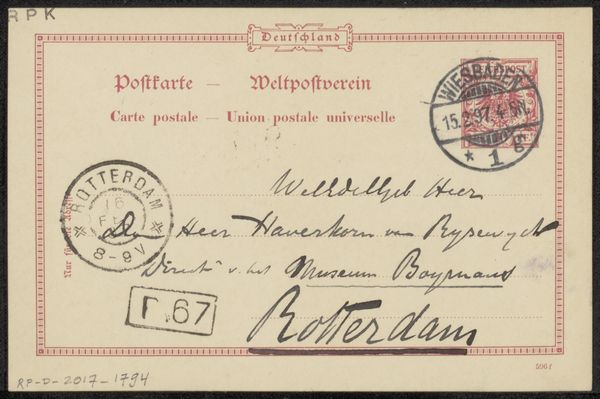 RPK
Deutschland
Postkarte — Weltpostverein
Carte postale — Union postale universelle
POST
WIESBADEN
15.2.97. 4-5N.
* 1 g
ROTTERDAM
16
8-9V
WelEdelGeb Heer
De Heer Haverkorn van Rysewyck
Direct^r v. het Museum Boymans
Rotterdam
67
Nur für
596 f
RP-D-2017-1794